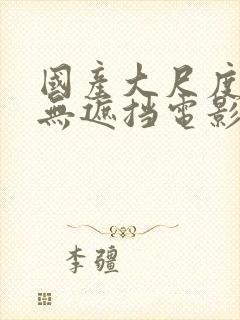 國産大尺度
無遮挡電影
李疆